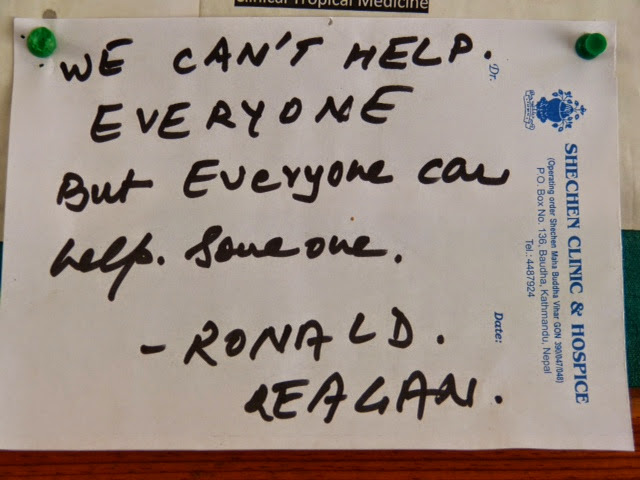 Clinical Tropical Medicine
WE CAN'T HELP.
EVERYONE
But Everyone can
help. Someone.
- RONALD.
REAGAN.
Dr.
SHECHEN CLINIC & HOSPICE
(Operating order Shechen Maha Buddha Vihar GON 390/047/048)
P.O. Box No. 136, Baudha, Kathmandu, Nepal
Tel.: 4487924
Date: